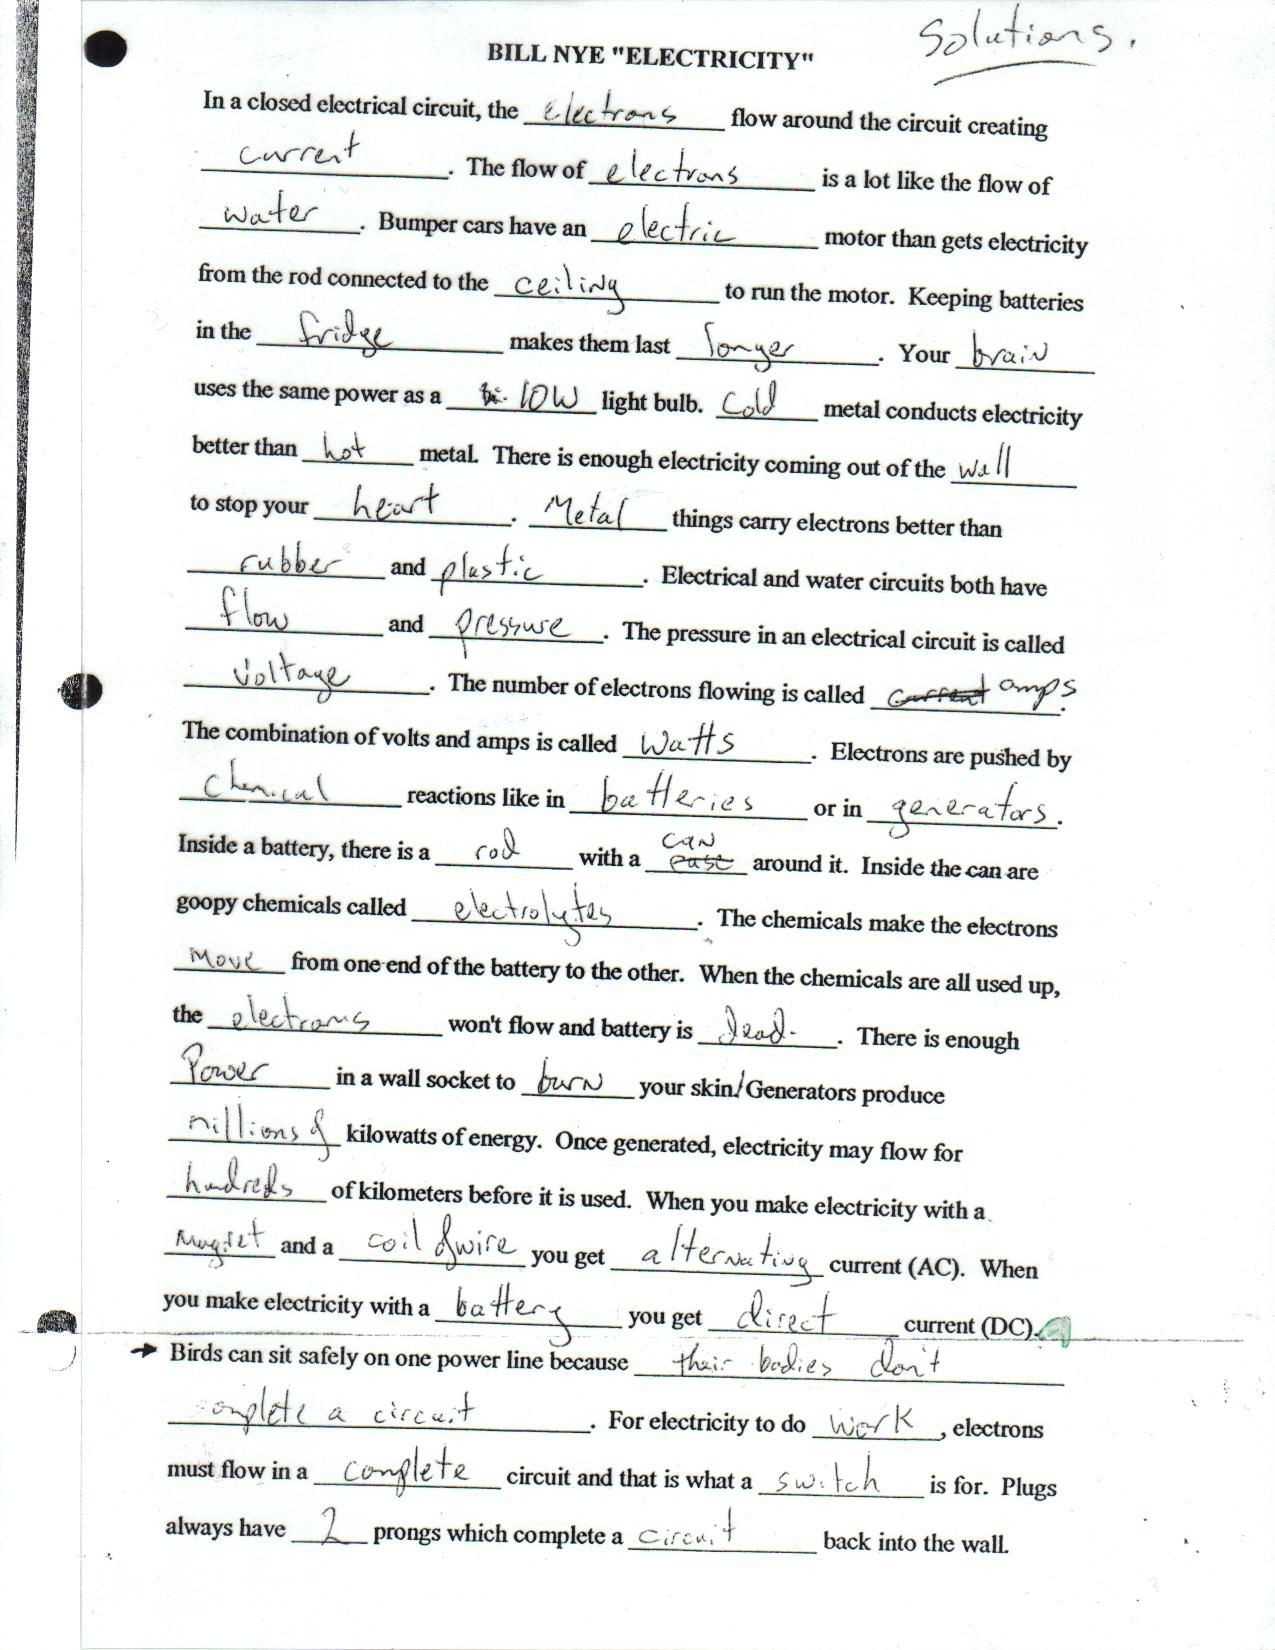 Solutions.
BILL NYE "ELECTRICITY"
In a closed electrical circuit, the electrons flow around the circuit creating
current. The flow of electrons is a lot like the flow of
water. Bumper cars have an electric motor than gets electricity
from the rod connected to the ceiling to run the motor. Keeping batteries
in the fridge makes them last longer. Your brain
uses the same power as a 10W light bulb. Cold metal conducts electricity
better than hot metal. There is enough electricity coming out of the wall
to stop your heart. Metal things carry electrons better than
rubber and plastic. Electrical and water circuits both have
flow and pressure. The pressure in an electrical circuit is called
voltage. The number of electrons flowing is called current amps.
The combination of volts and amps is called watts. Electrons are pushed by
chemical reactions like in batteries or in generators.
Inside a battery, there is a rod with a can around it. Inside the can are
goopy chemicals called electrolytes. The chemicals make the electrons
move from one end of the battery to the other. When the chemicals are all used up,
the electrons won't flow and battery is dead. There is enough
Power in a wall socket to burn your skin/Generators produce
millions of kilowatts of energy. Once generated, electricity may flow for
hundreds of kilometers before it is used. When you make electricity with a
magnet and a coil of wire you get alternating current (AC). When
you make electricity with a battery you get direct current (DC).
Birds can sit safely on one power line because their bodies don't
complete a circuit. For electricity to do work, electrons
must flow in a complete circuit and that is what a switch is for. Plugs
always have 2 prongs which complete a circuit back into the wall.